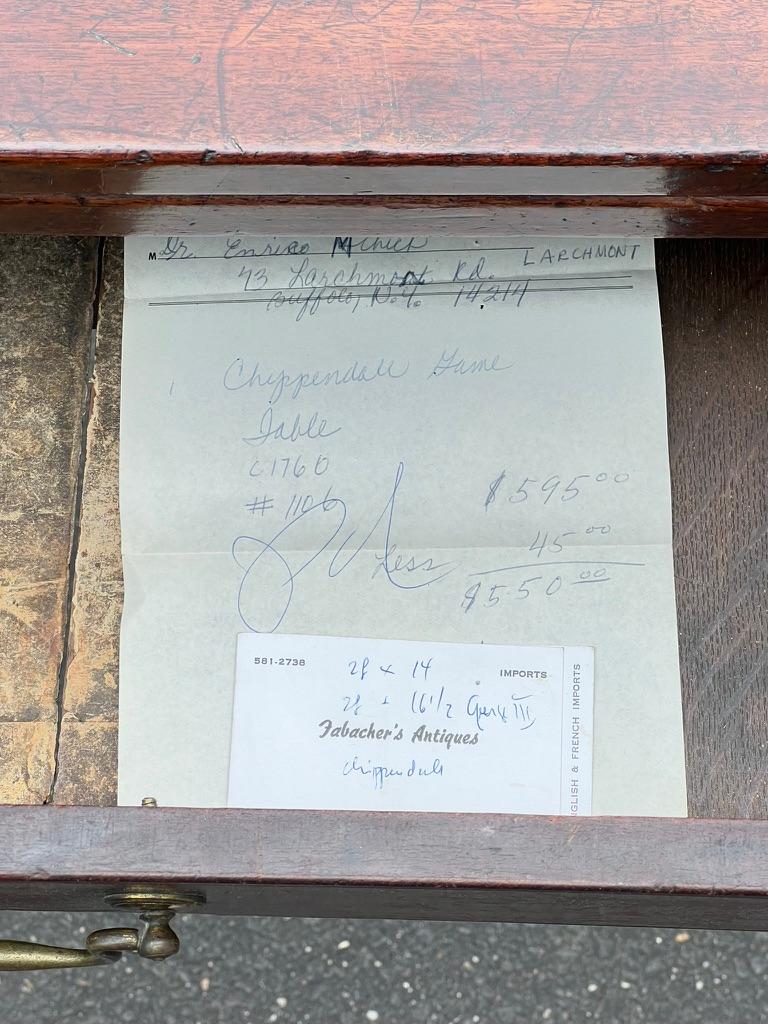 M Dr. Enrico
LARCHMONT
43 Larchmont Rd.
Buffalo, N.Y. 14214
1 Chippendale Game
Table
c1760
# 1106
$595 00
Less 45 00
$550 00
581-2738
IMPORTS
28 x 14
28 x 16 1/2
Fabacher's Antiques
Chippendale
GLISH & FRENCH IMPORTS